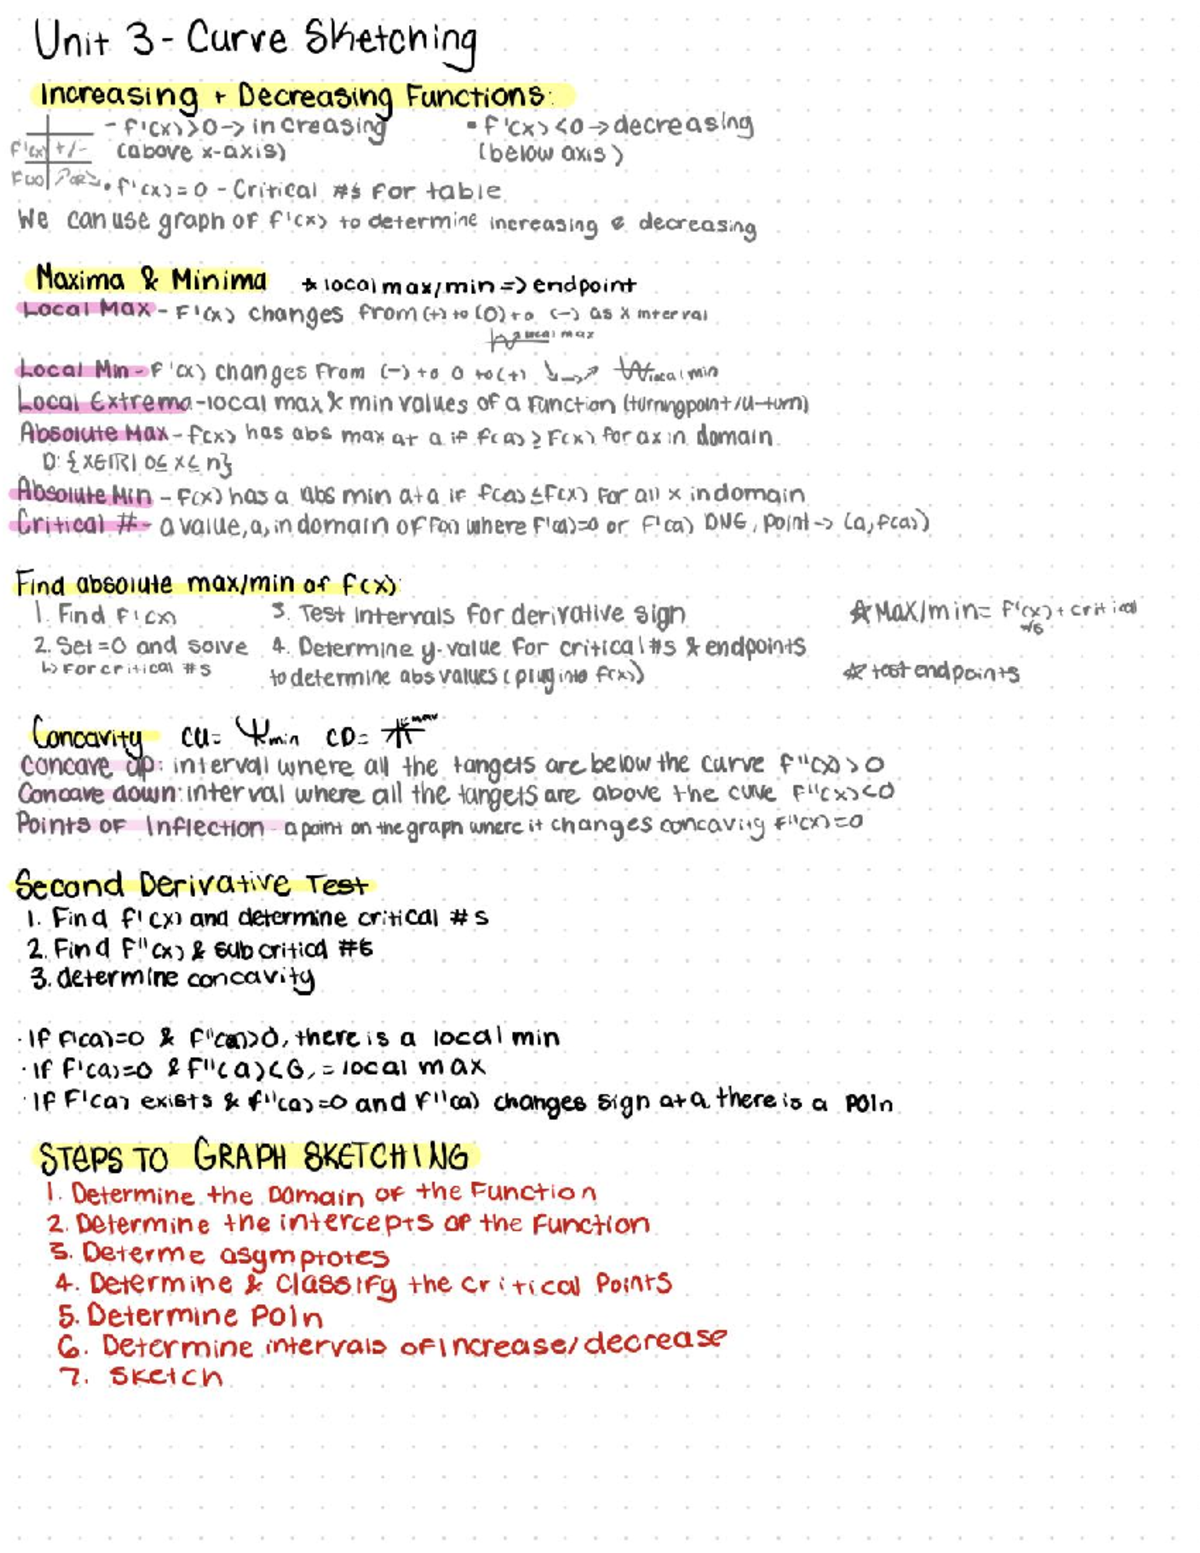 Unit 3 - Curve Sketching
Increasing + Decreasing Functions:
- f'(x)>0 -> increasing
(above x-axis)
• f'(x)<0 -> decreasing
(below axis)
f'(x) +/-
F(x) ↗or↘
• f'(x)=0 - Critical #s for table
We can use graph of f'(x) to determine increasing & decreasing
Maxima & Minima * local max/min => endpoint
Local Max - F'(x) changes from (+) to (0) to (-) as x interval
local max
Local Min - F'(x) changes from (-) to 0 to (+) ↘→↗ local min
Local Extrema - local max & min values of a function (turning point/u-turn)
Absolute Max - f(x) has abs max at a if f(a) ≥ F(x) for ax in domain
D: {XEIR| 0≤ x ≤ n}
Absolute Min - F(x) has a abs min at a if f(a) ≤ F(x) for all x in domain
Critical # - a value, a, in domain of F(x) where F'(a)=0 or f'(a) DNE, point -> (a, f(a))
Find absolute max/min of f(x):
1. Find F'(x)
2. Set =0 and solve
↳ For critical #s
3. Test intervals for derivative sign
4. Determine y-value for critical #s & endpoints
to determine abs values (plug into f(x))
☆ Max/min = f'(x) + critical
#s
☆ test endpoints
Concavity CU= min CD= max
Concave up: interval where all the tangets are below the curve f"(x) > 0
Concave down: interval where all the tangets are above the cuve F"(x)<0
Points of Inflection - a point on the graph where it changes concavity F"(x)=0
Second Derivative Test
1. Find f'(x) and determine critical #s
2. Find F"(x) & sub critical #s
3. determine concavity
· If f'(a)=0 & f"(a)>0, there is a local min
· If f'(a)=0 & f"(a)<0, = local max
· If F'(a) exists & f"(a)=0 and F"(a) changes sign at a there is a POIn
STEPS TO GRAPH SKETCHING
1. Determine the Domain of the Function
2. Determine the intercepts of the Function
3. Determe asymptotes
4. Determine & classify the critical Points
5. Determine POIn
6. Determine intervals of Increase/decrease
7. Sketch